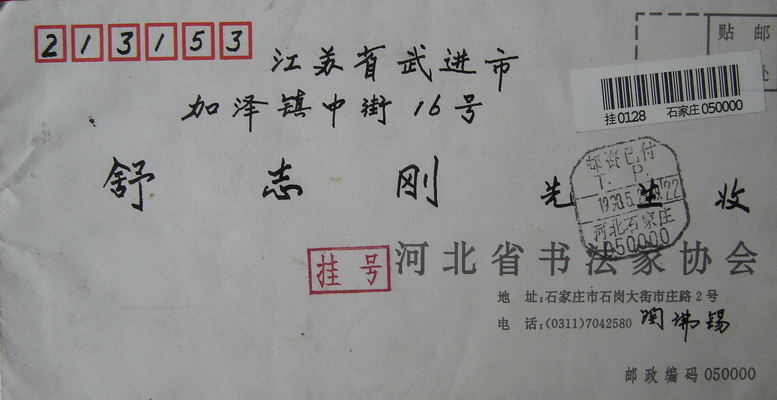 213153
贴 邮
处
江苏省武进市
加泽镇中街16号
挂0128 石家庄 050000
舒 志 刚 先 生 收
邮资已付
T. P.
河北石家庄
050000
挂号
河北省书法家协会
地 址:石家庄市石岗大街市庄路2号
电 话:(0311)7042580
邮政编码050000